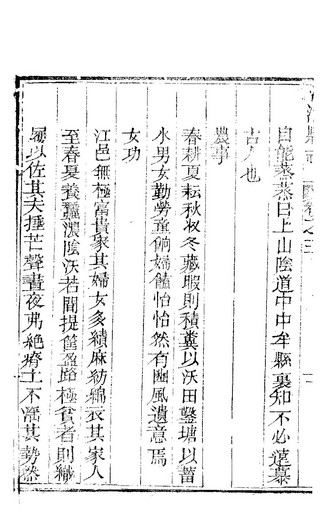 自能蒸蒸日上山陰道中中牟縣裏知不必遠慕
古人也
農事
春耕夏耘秋收冬藏暇則積糞以沃田鑿塘以蓄
水男女勤勞童餉婦饁怡怡然有豳風遺意焉
女功
江邑無極富貴家其婦女多績麻紡綿衣其家人
至春夏養蠶濃陰沃若間提筐盈路極貧者則織
屨以佐其夫捶芒聲晝夜弗絕瘠土不淫其勢然